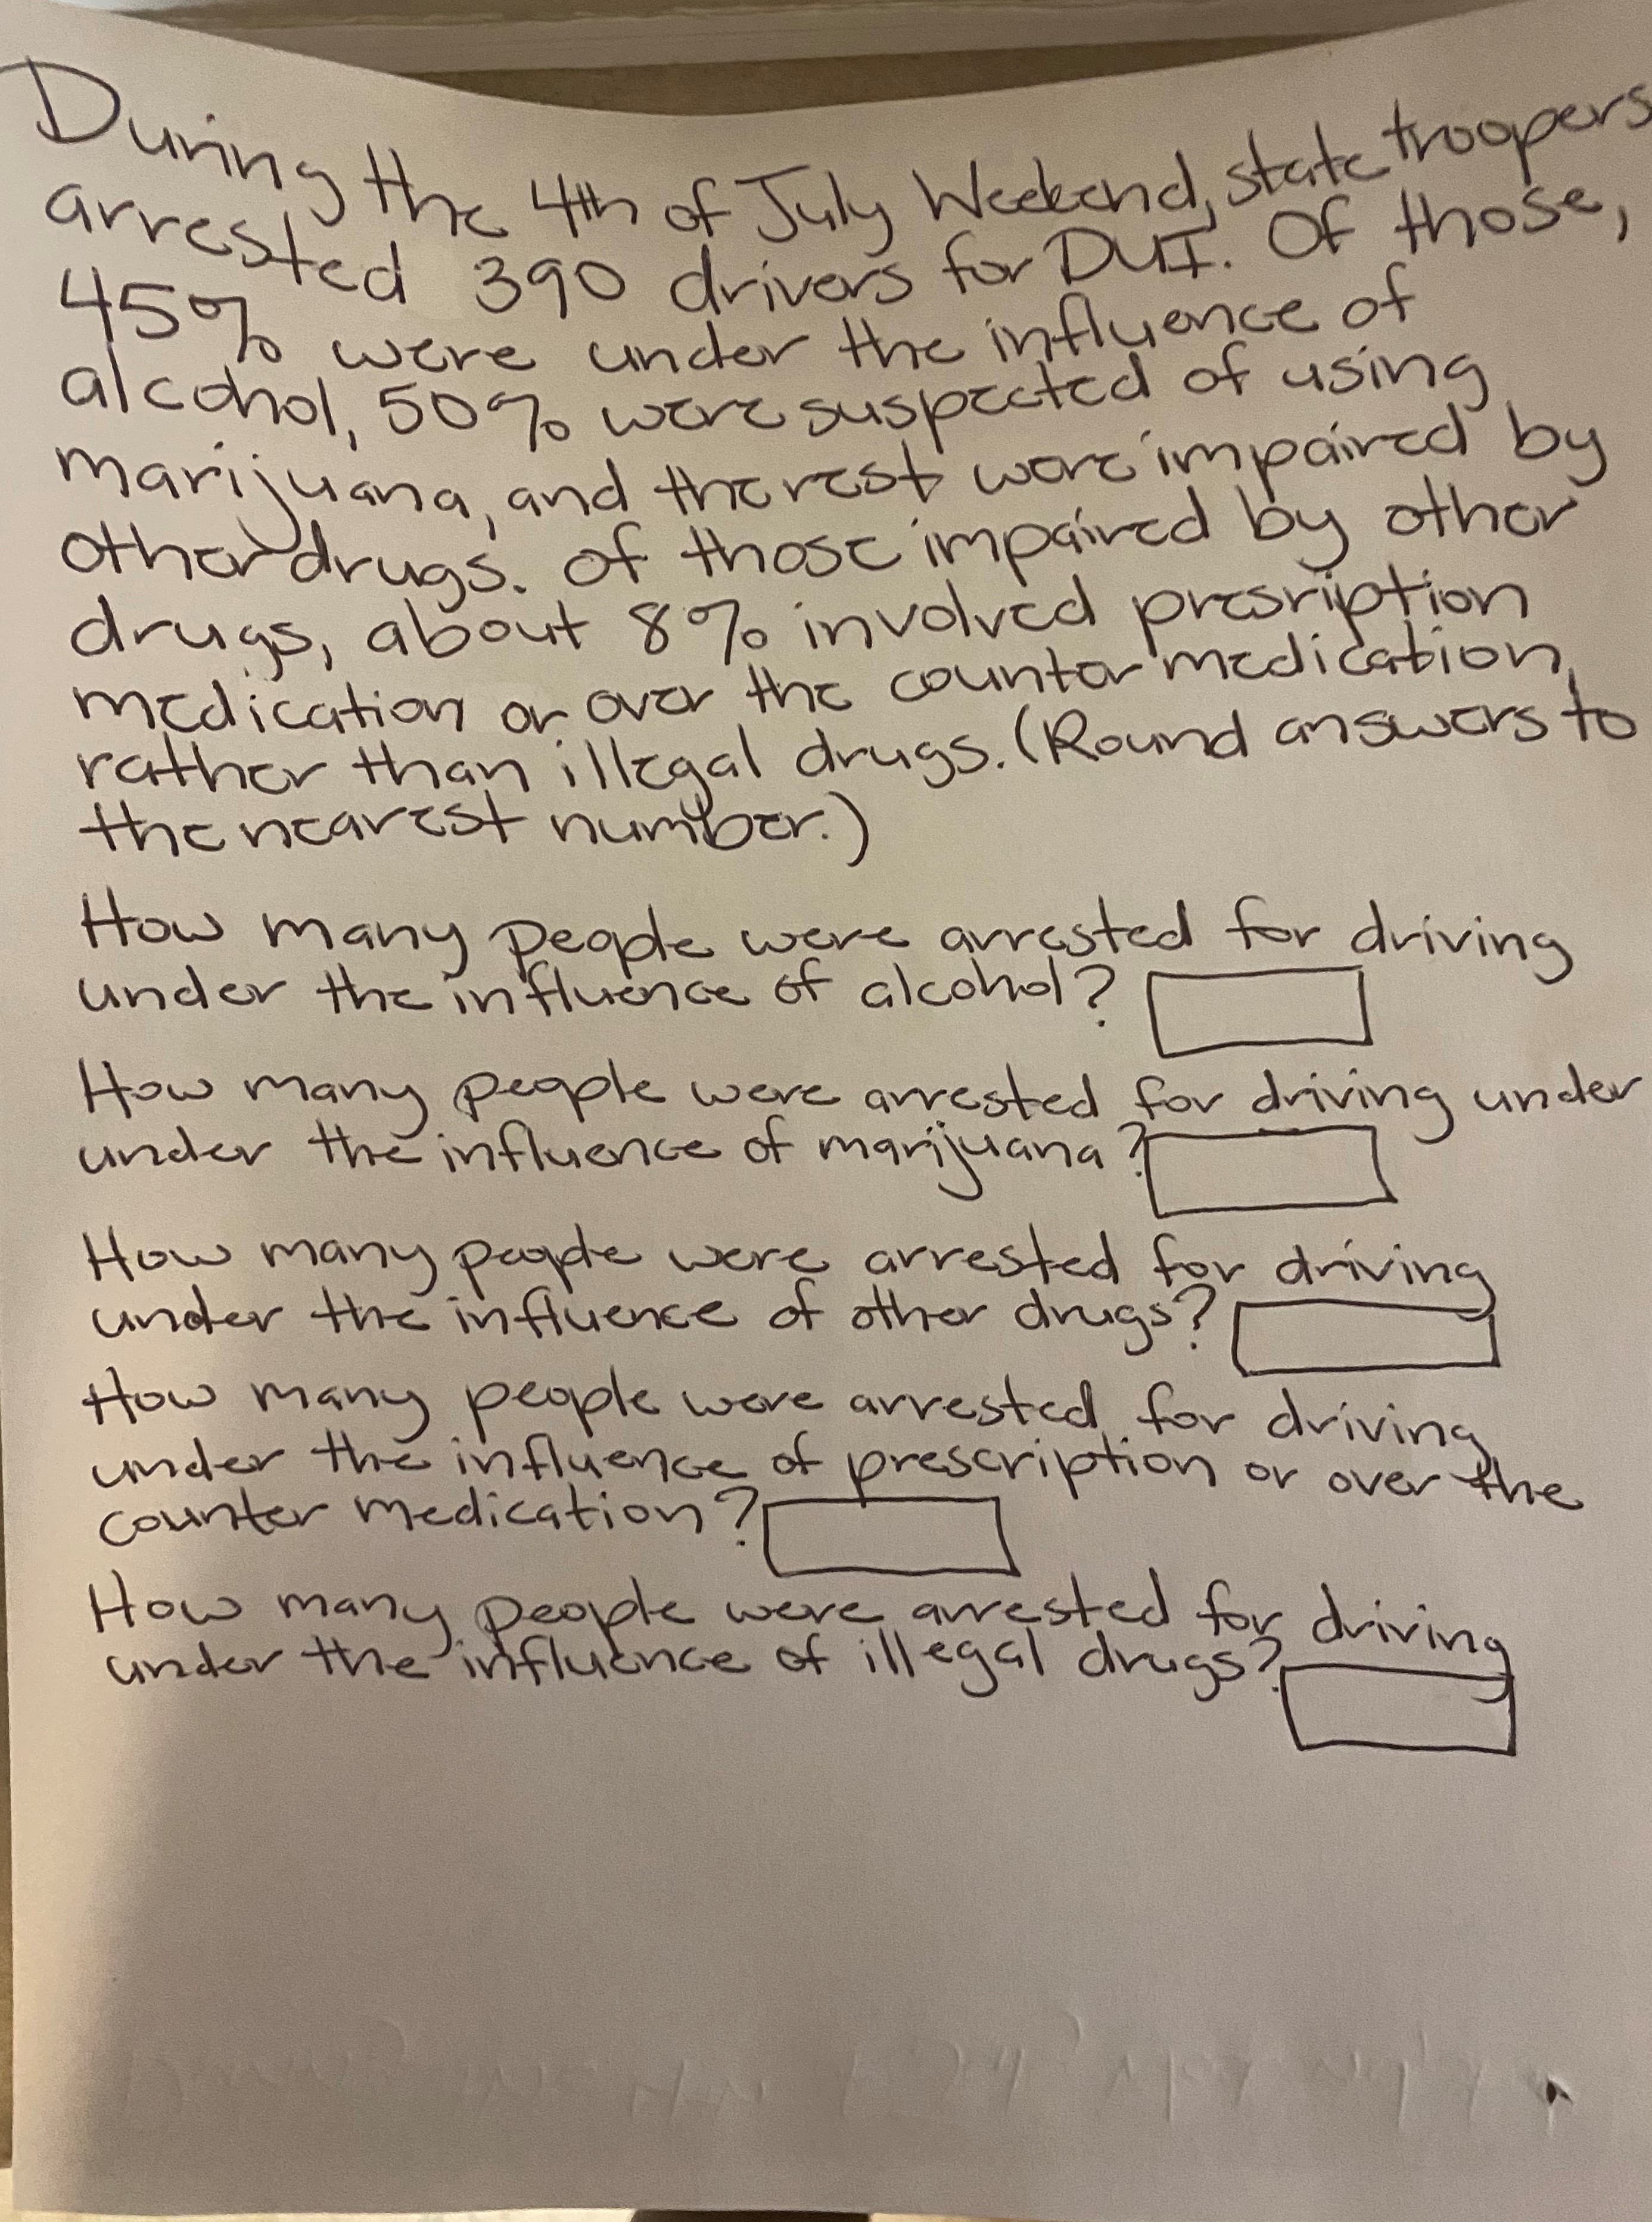 During the 4th of July Weekend, state troopers
arrested 390 drivers for DUI. Of those,
45% were under the influence of
alcohol, 50% were suspected of using
marijuana, and the rest were impaired by
other drugs. of those impaired by other
drugs, about 8% involved presription
medication or over the counter medication,
rather than illegal drugs. (Round answers to
the nearest number.)
How many people were arrested for driving
under the influence of alcohol?
How many people were arrested for driving under
under the influence of marijuana?
How many people were arrested for driving
under the influence of other drugs?
How many people were arrested for driving
under the influence of prescription or over the
counter medication?
How many people were arrested for driving
under the influence of illegal drugs?